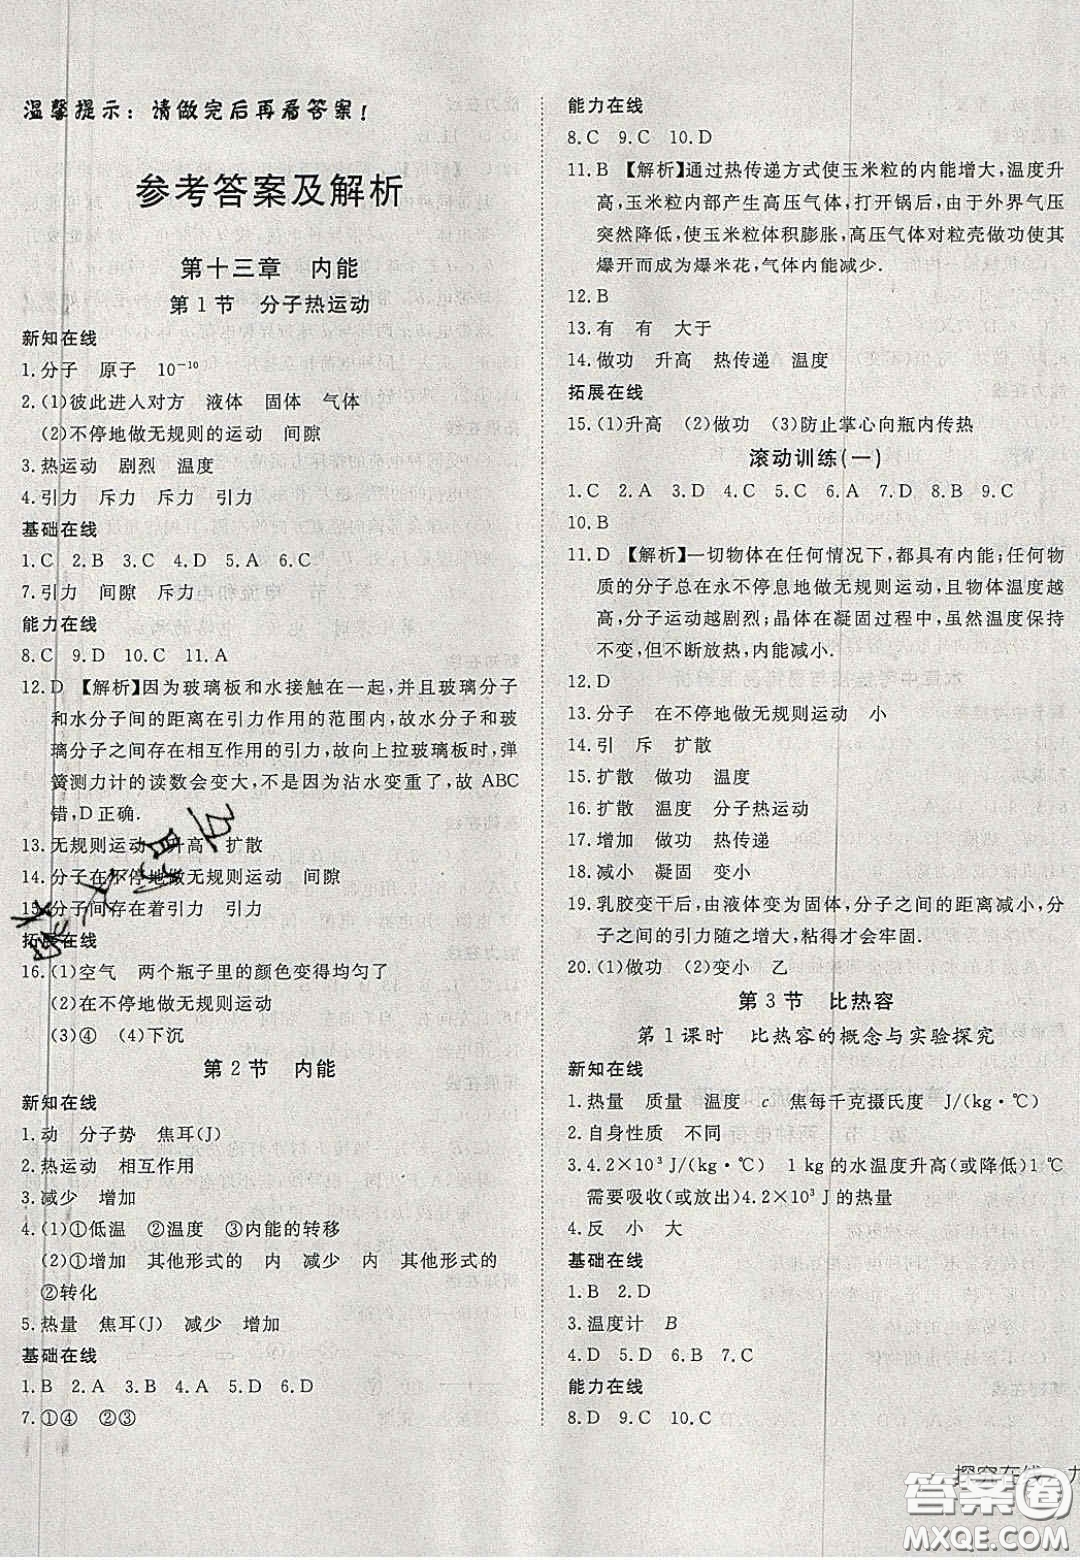 温馨提示：请做完后再看答案！
参考答案及解析
第十三章　内能
第1节　分子热运动
新知在线
1.分子　原子　10⁻¹⁰
2.(1)彼此进入对方　液体　固体　气体
(2)不停地做无规则的运动　间隙
3.热运动　剧烈　温度
4.引力　斥力　斥力　引力
基础在线
1.C　2.B　3.C　4.D　5.A　6.C
7.引力　间隙　斥力
能力在线
8.C　9.D　10.C　11.A
12.D　【解析】因为玻璃板和水接触在一起,并且玻璃分子
和水分子间的距离在引力作用的范围内,故水分子和玻
璃分子之间存在相互作用的引力,故向上拉玻璃板时,弹
簧测力计的读数会变大,不是因为沾水变重了,故 ABC
错,D正确.
13.无规则运动　升高　扩散
14.分子在不停地做无规则运动　间隙
15.分子间存在着引力　引力
拓展在线
16.(1)空气　两个瓶子里的颜色变得均匀了
(2)在不停地做无规则运动
(3)④　(4)下沉
第2节　内能
新知在线
1.动　分子势　焦耳(J)
2.热运动　相互作用
3.减少　增加
4.(1)①低温　②温度　③内能的转移
(2)①增加　其他形式的　内　减少　内　其他形式的
②转化
5.热量　焦耳(J)　减少　增加
基础在线
1.B　2.A　3.D　4.A　5.D　6.D
7.①④　②③
能力在线
8.C　9.C　10.D
11.B　【解析】通过热传递方式使玉米粒的内能增大,温度升
高,玉米粒内部产生高压气体,打开锅后,由于外界气压
突然降低,使玉米粒体积膨胀,高压气体对粒壳做功使其
爆开而成为爆米花,气体内能减少.
12.B
13.有　有　大于
14.做功　升高　热传递　温度
拓展在线
15.(1)升高　(2)做功　(3)防止掌心向瓶内传热
滚动训练(一)
1.C　2.A　3.D　4.C　5.C　6.A　7.D　8.B　9.C
10.B
11.D　【解析】一切物体在任何情况下,都具有内能;任何物
质的分子总在永不停息地做无规则运动,且物体温度越
高,分子运动越剧烈;晶体在凝固过程中,虽然温度保持
不变,但不断放热,内能减小.
12.D
13.分子　在不停地做无规则运动　小
14.引　斥　扩散
15.扩散　做功　温度
16.扩散　温度　分子热运动
17.增加　做功　热传递
18.减小　凝固　变小
19.乳胶变干后,由液体变为固体,分子之间的距离减小,分
子之间的引力随之增大,粘得才会牢固.
20.(1)做功　(2)变小　乙
第3节　比热容
第1课时　比热容的概念与实验探究
新知在线
1.热量　质量　温度　c　焦每千克摄氏度　J/(kg·℃)
2.自身性质　不同
3.4.2×10³ J/(kg·℃)　1 kg的水温度升高(或降低)1℃
需要吸收(或放出)4.2×10³ J的热量
4.反　小　大
基础在线
1.B　2.D
3.温度计　B
4.D　5.D　6.B　7.C
能力在线
8.D　9.C　10.C
探究在线　九
答案圈
MXQE.COM